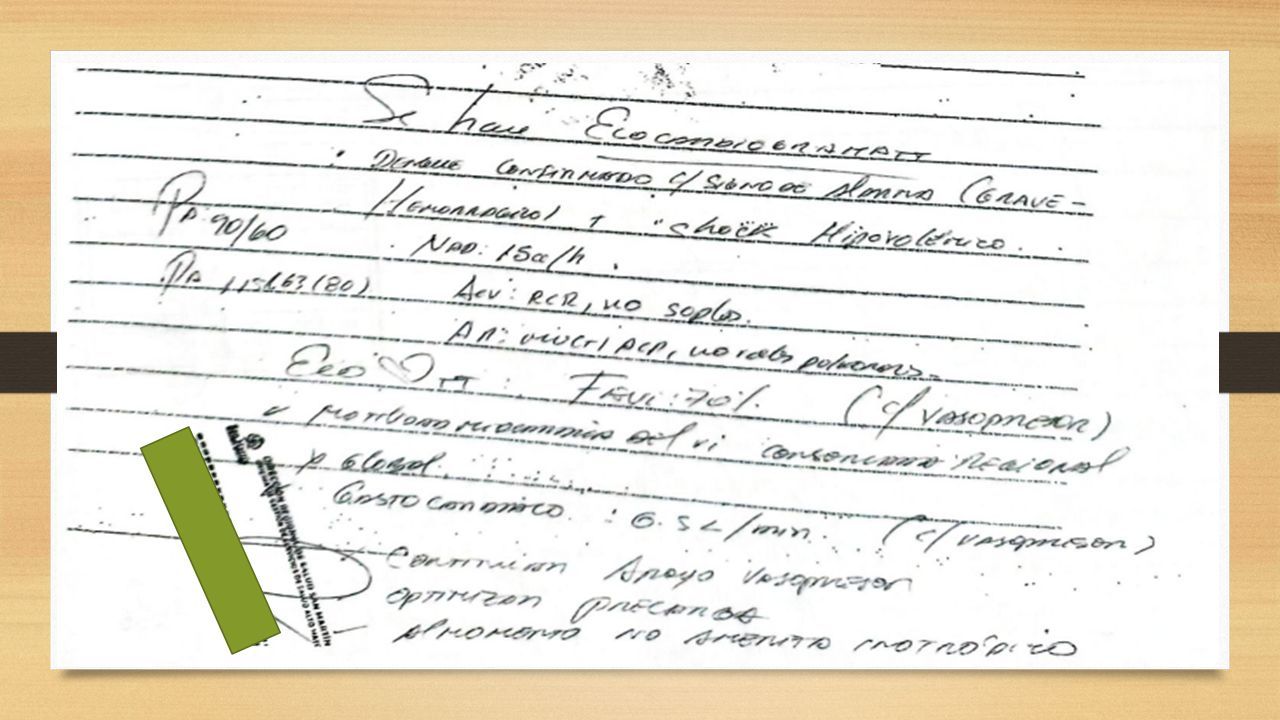 Se hace ECOCARDIOGRAMATT
• DENGUE CONFIRMADO C/ SIGNO DE ALARMA (GRAVE -
HEMORRAGICO) + "shock HIPOVOLÉMICO.
PA 90/60
NAD: 15cc/h.
PA 115/63 (80)
ACV: RCR, no soplos.
AR: ACP, no rales pulmonares.
Eco ♡ TT: FEVI: 70%. (c/ VASOPRESOR)
DEL VI CONSERVADA REGIONAL
y Global.
GASTO CARDIACO: 6.5 L/min. (c/ VASOPRESOR)
CONTINUAR APOYO VASOPRESOR
OPTIMIZAR PRECARGA
- AL MOMENTO NO AMERITA INOTRÓPICO
SALUD SAN MARTÍN